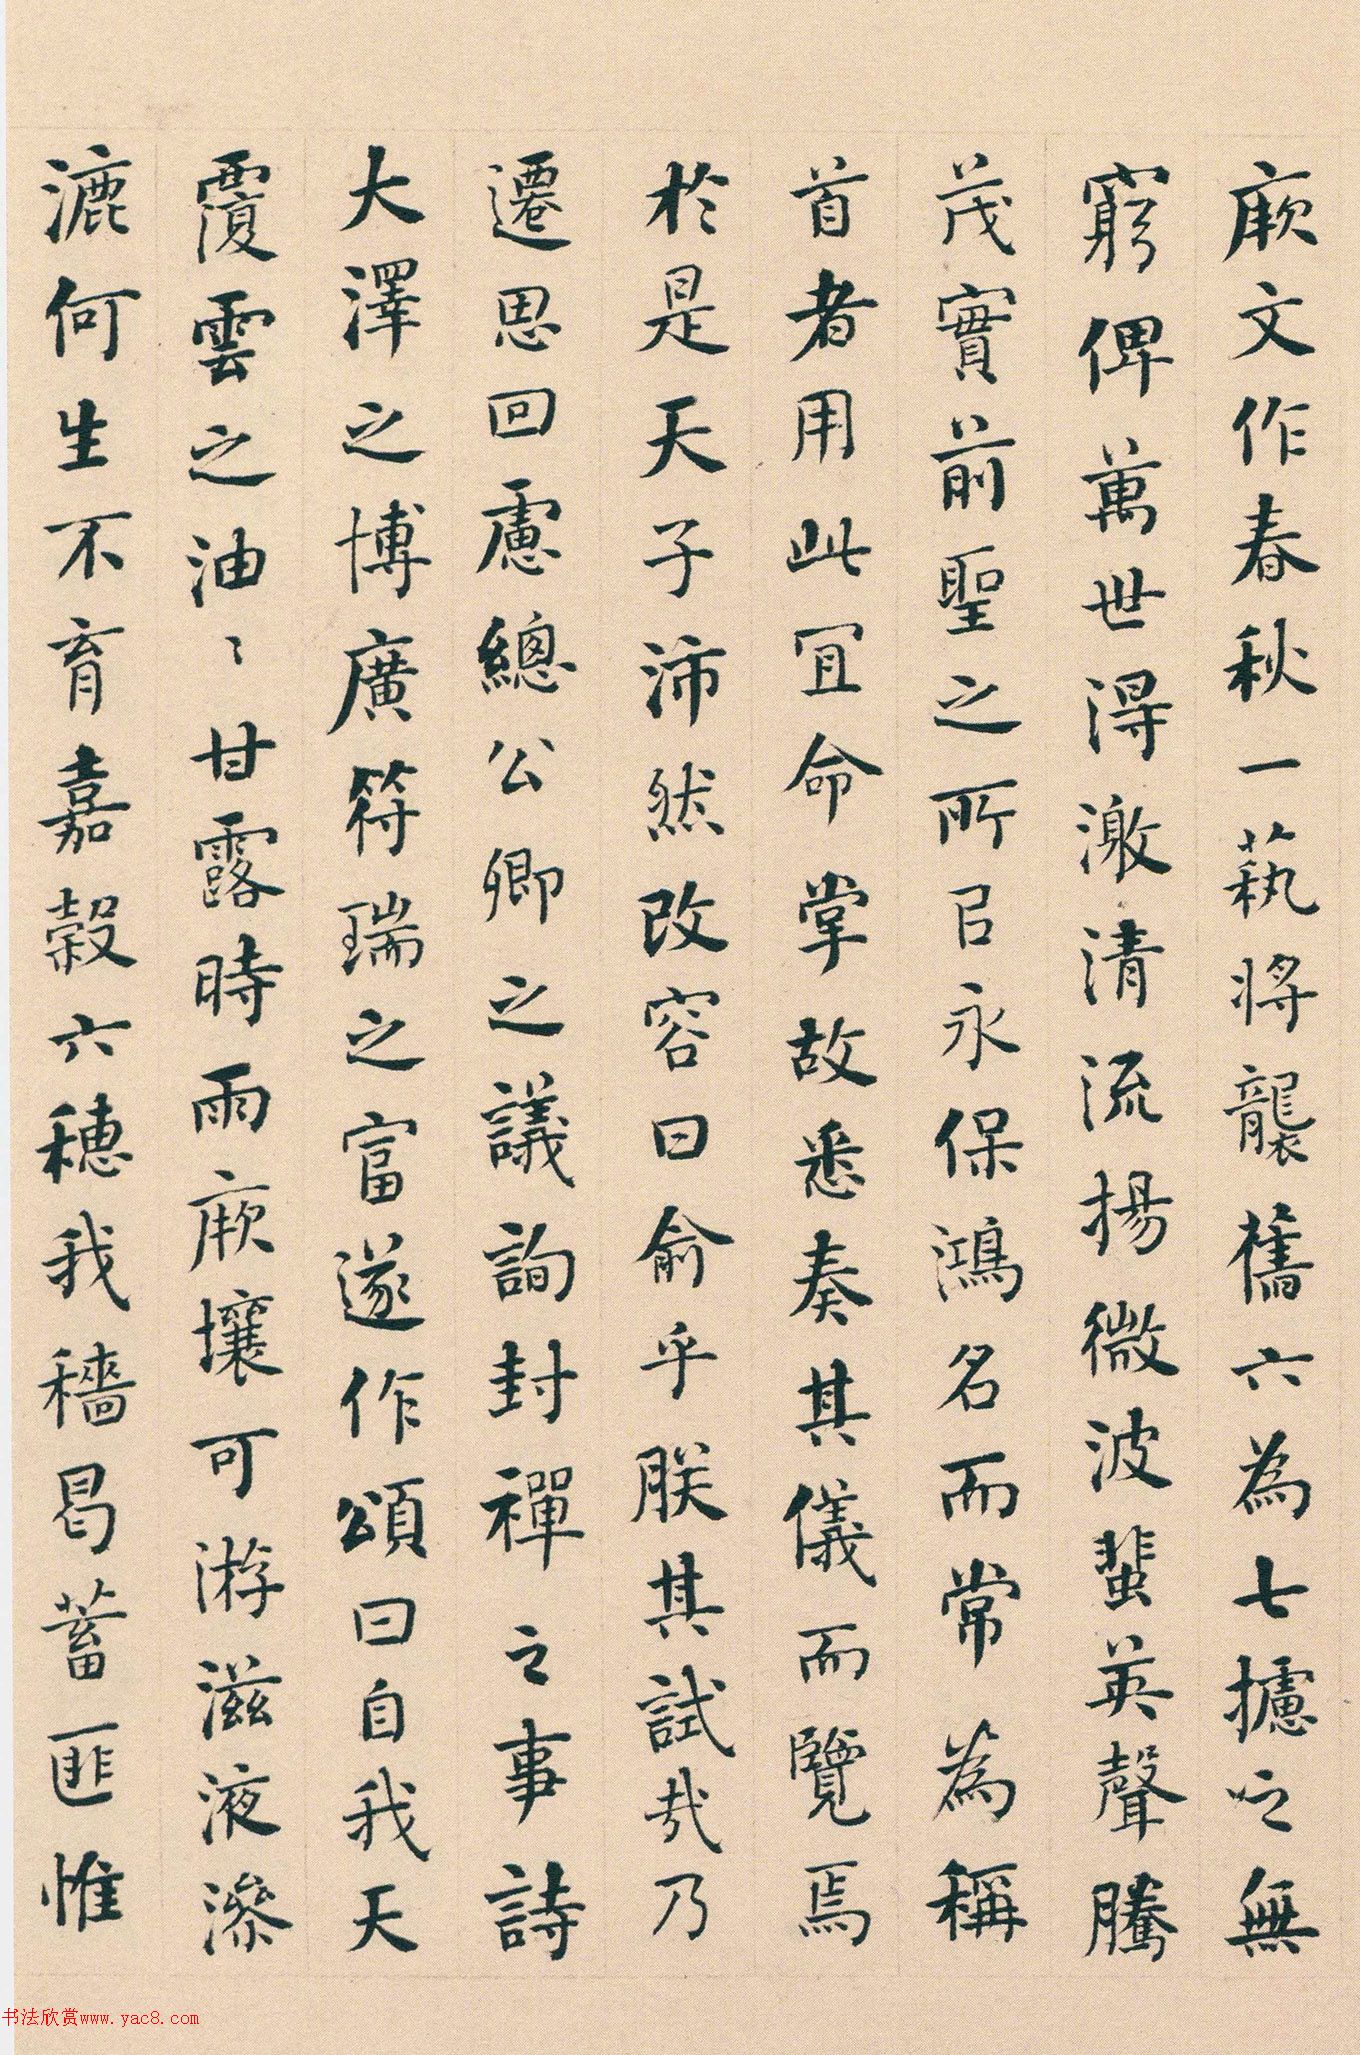 厥文作春秋一蓺將襲舊六為七攄之無
窮俾萬世得激清流揚微波蜚英聲騰
茂實前聖之所㠯永保鴻名而常為稱
首者用此宜命掌故悉奏其儀而覽焉
於是天子沛然改容曰俞乎朕其試哉乃
遷思回慮總公卿之議詢封禪之事詩
大澤之博廣符瑞之富遂作頌曰自我天
覆雲之油〻甘露時雨厥壤可游滋液滲
漉何生不育嘉穀六穗我穡曷蓄匪惟
书法欣赏www.yac8.com